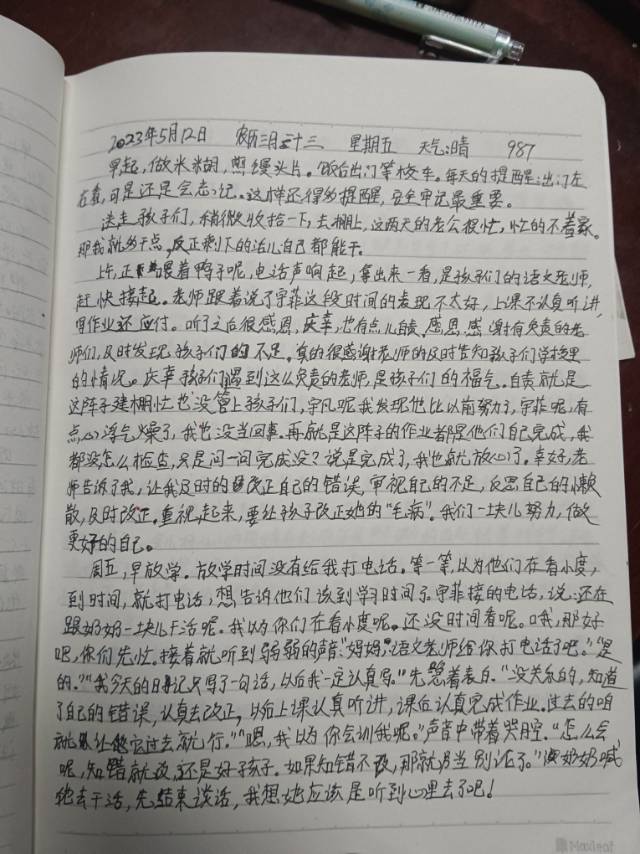 2023年5月12日 农历三月二十三 星期五 天气:晴 987
早起,做米糊,煎馒头片。饭后出门等校车。每天的提醒:出门左
右看,可是还是会忘记。这样还得多提醒,安全牢记最重要。
送走孩子们,稍微收拾一下,去棚上,这两天的老公很忙,忙的不着家。
那我就多干点,反正剩下的活儿自己都能干。
上午,正跟着鸭子呢,电话声响起,拿出来一看,是孩子们的语文老师,
赶快接起。老师跟着说了宇菲这段时间的表现不太好,上课不认真听讲,
写作业还应付。听了之后很感恩、庆幸,也有点儿自责。感恩,感谢有负责的老
师们,及时发现孩子们的不足。真的很感谢老师的及时告知孩子们学校里
的情况。庆幸孩子们遇到这么负责的老师,是孩子们的福气。自责就是
这阵子建棚忙也没管上孩子们,宇凡呢我发现他比以前努力了,宇菲呢,有
点心浮气燥了,我也没当回事。再就是这阵子的作业都是他们自己完成,我
都没怎么检查,只是问一问完成没?说是完成了,我也就放心了。幸好,老
师告诉了我,让我及时的改正自己的错误,审视自己的不足,反思自己的懒
散,及时改正。重视起来,要让孩子改正她的“毛病”。我们一块儿努力,做
更好的自己。
周五,早放学。放学时间没有给我打电话。等一等,以为他们在看小度,
到时间,就打电话,想告诉他们该到学习时间了。宇菲接的电话,说:还在
跟奶奶一块儿干活呢。我以为你们在看小度呢。还没时间看呢。哦,那好
吧,你们先忙。接着就听到弱弱的声音:“妈妈,语文老师给你打电话了吧。”“是
的。”“我今天的日记只写了一句话,以后我一定认真写。”先急着表白。“没关系的,知道
了自己的错误,认真去改正,以后上课认真听讲,课后认真完成作业。过去的咱
就让它过去就行。”“嗯,我以为你会训我呢。”声音中带着哭腔。“怎么会
呢,知错就改,还是好孩子。如果知错不改,那就另当别论了。”奶奶喊
她去干活,先结束谈话,我想她应该是听到心里去了吧!
Maxleaf